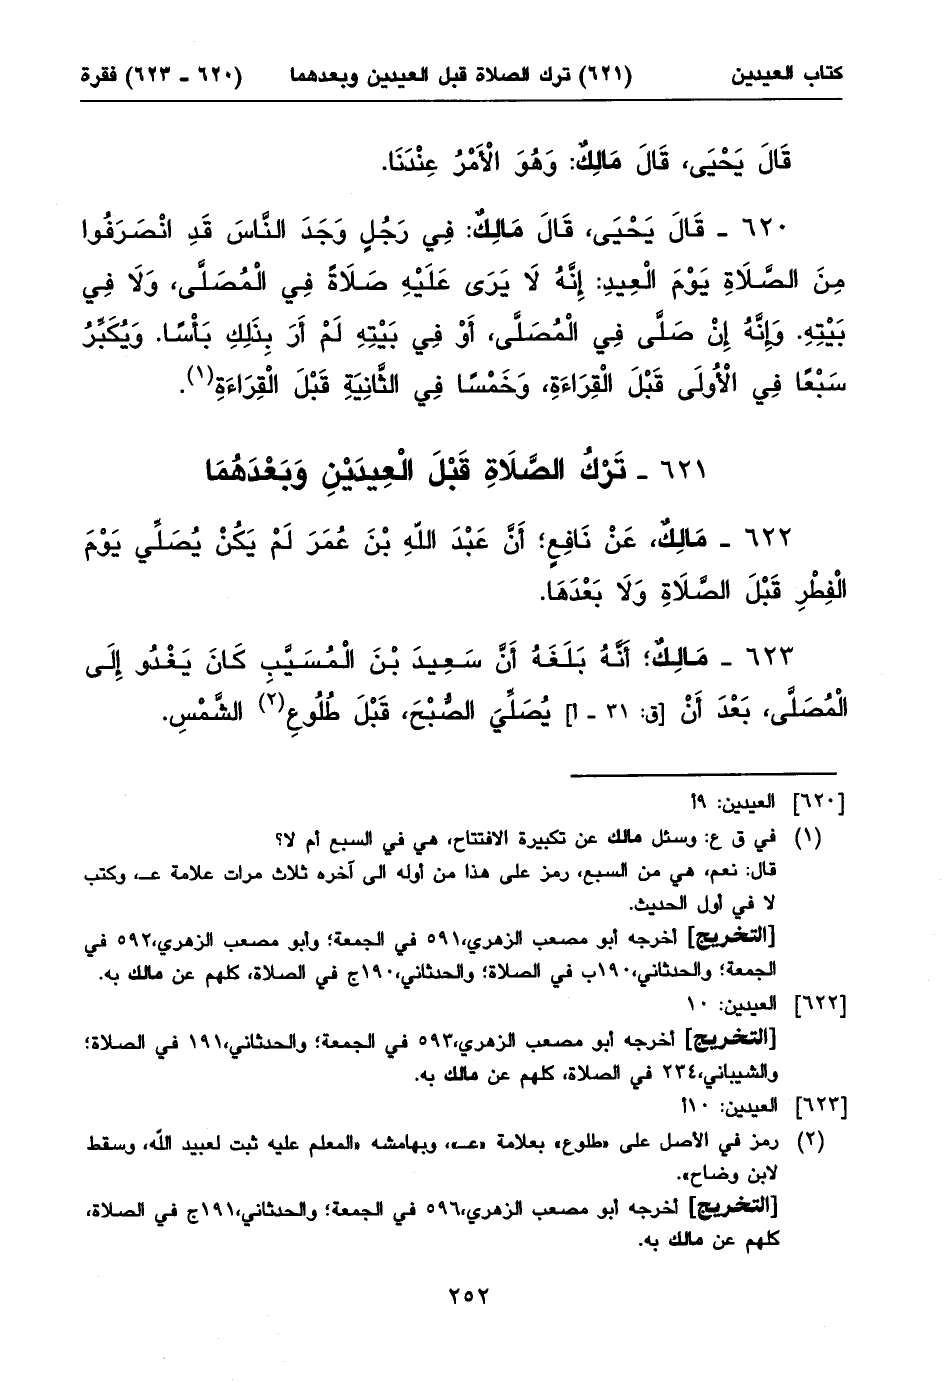 كتاب العيدين (٦٢١) ترك الصلاة قبل العيدين وبعدهما (٦٢٠ - ٦٢٣) فقرة
قَالَ يَحْيَى، قَالَ مَالِكٌ: وَهُوَ الْأَمْرُ عِنْدَنَا.
٦٢٠ - قَالَ يَحْيَى، قَالَ مَالِكٌ: فِي رَجُلٍ وَجَدَ النَّاسَ قَدِ انْصَرَفُوا
مِنَ الصَّلَاةِ يَوْمَ الْعِيدِ: إِنَّهُ لَا يَرَى عَلَيْهِ صَلَاةً فِي الْمُصَلَّى، وَلَا فِي
بَيْتِهِ. وَإِنَّهُ إِنْ صَلَّى فِي الْمُصَلَّى، أَوْ فِي بَيْتِهِ لَمْ أَرَ بِذَلِكِ بَأْسًا. وَيُكَبِّرُ
سَبْعًا فِي الْأُولَى قَبْلَ الْقِرَاءَةِ، وَخَمْسًا فِي الثَّانِيَةِ قَبْلَ الْقِرَاءَةِ(١).
٦٢١ - تَرْكُ الصَّلَاةِ قَبْلَ الْعِيدَيْنِ وَبَعْدَهُمَا
٦٢٢ - مَالِكٌ، عَنْ نَافِعٍ؛ أَنَّ عَبْدَ اللّهِ بْنَ عُمَرَ لَمْ يَكُنْ يُصَلِّي يَوْمَ
الْفِطْرِ قَبْلَ الصَّلَاةِ وَلَا بَعْدَهَا.
٦٢٣ - مَالِكٌ؛ أَنَّهُ بَلَغَهُ أَنَّ سَعِيدَ بْنَ الْمُسَيَّبِ كَانَ يَغْدُو إِلَى
الْمُصَلَّى، بَعْدَ أَنْ [ق: ٣١ - أ] يُصَلِّيَ الصُّبْحَ، قَبْلَ طُلُوعِ(٢) الشَّمْسِ.
[٦٢٠] العيدين: ٩أ
(١) في ق ع: وسئل مالك عن تكبيرة الافتتاح، هي في السبع أم لا؟
قال: نعم، هي من السبع، رمز على هذا من أوله الى آخره ثلاث مرات علامة عـ، وكتب
لا في أول الحديث.
[التخريج] أخرجه أبو مصعب الزهري،٥٩١ في الجمعة؛ وأبو مصعب الزهري،٥٩٢ في
الجمعة؛ والحدثاني،١٩٠ب في الصلاة؛ والحدثاني،١٩٠ج في الصلاة، كلهم عن مالك به.
[٦٢٢] العيدين: ١٠
[التخريج] أخرجه أبو مصعب الزهري،٥٩٣ في الجمعة؛ والحدثاني،١٩١ في الصلاة؛
والشيباني،٢٣٤ في الصلاة، كلهم عن مالك به.
[٦٢٣] العيدين: ١٠أ
(٢) رمز في الأصل على «طلوع» بعلامة «عـ»، وبهامشه «المعلم عليه ثبت لعبيد اللّه، وسقط
لابن وضاح».
[التخريج] أخرجه أبو مصعب الزهري،٥٩٦ في الجمعة؛ والحدثاني،١٩١ج في الصلاة،
كلهم عن مالك به.
٢٥٢